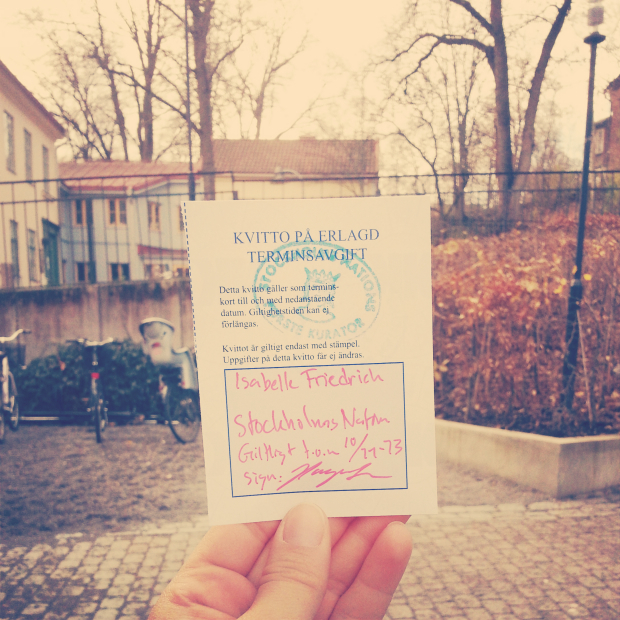 KVITTO PÅ ERLAGD
TERMINSAVGIFT
Detta kvitto gäller som termins-
kort till och med nedanstående
datum. Giltighetstiden kan ej
förlängas.
Kvittot är giltigt endast med stämpel.
Uppgifter på detta kvitto får ej ändras.
STOCKHOLMS NATIONS
KURATOR
Isabelle Friedrich
Stockholms Nation
Giltligt t.o.m 10/11-13
sign: